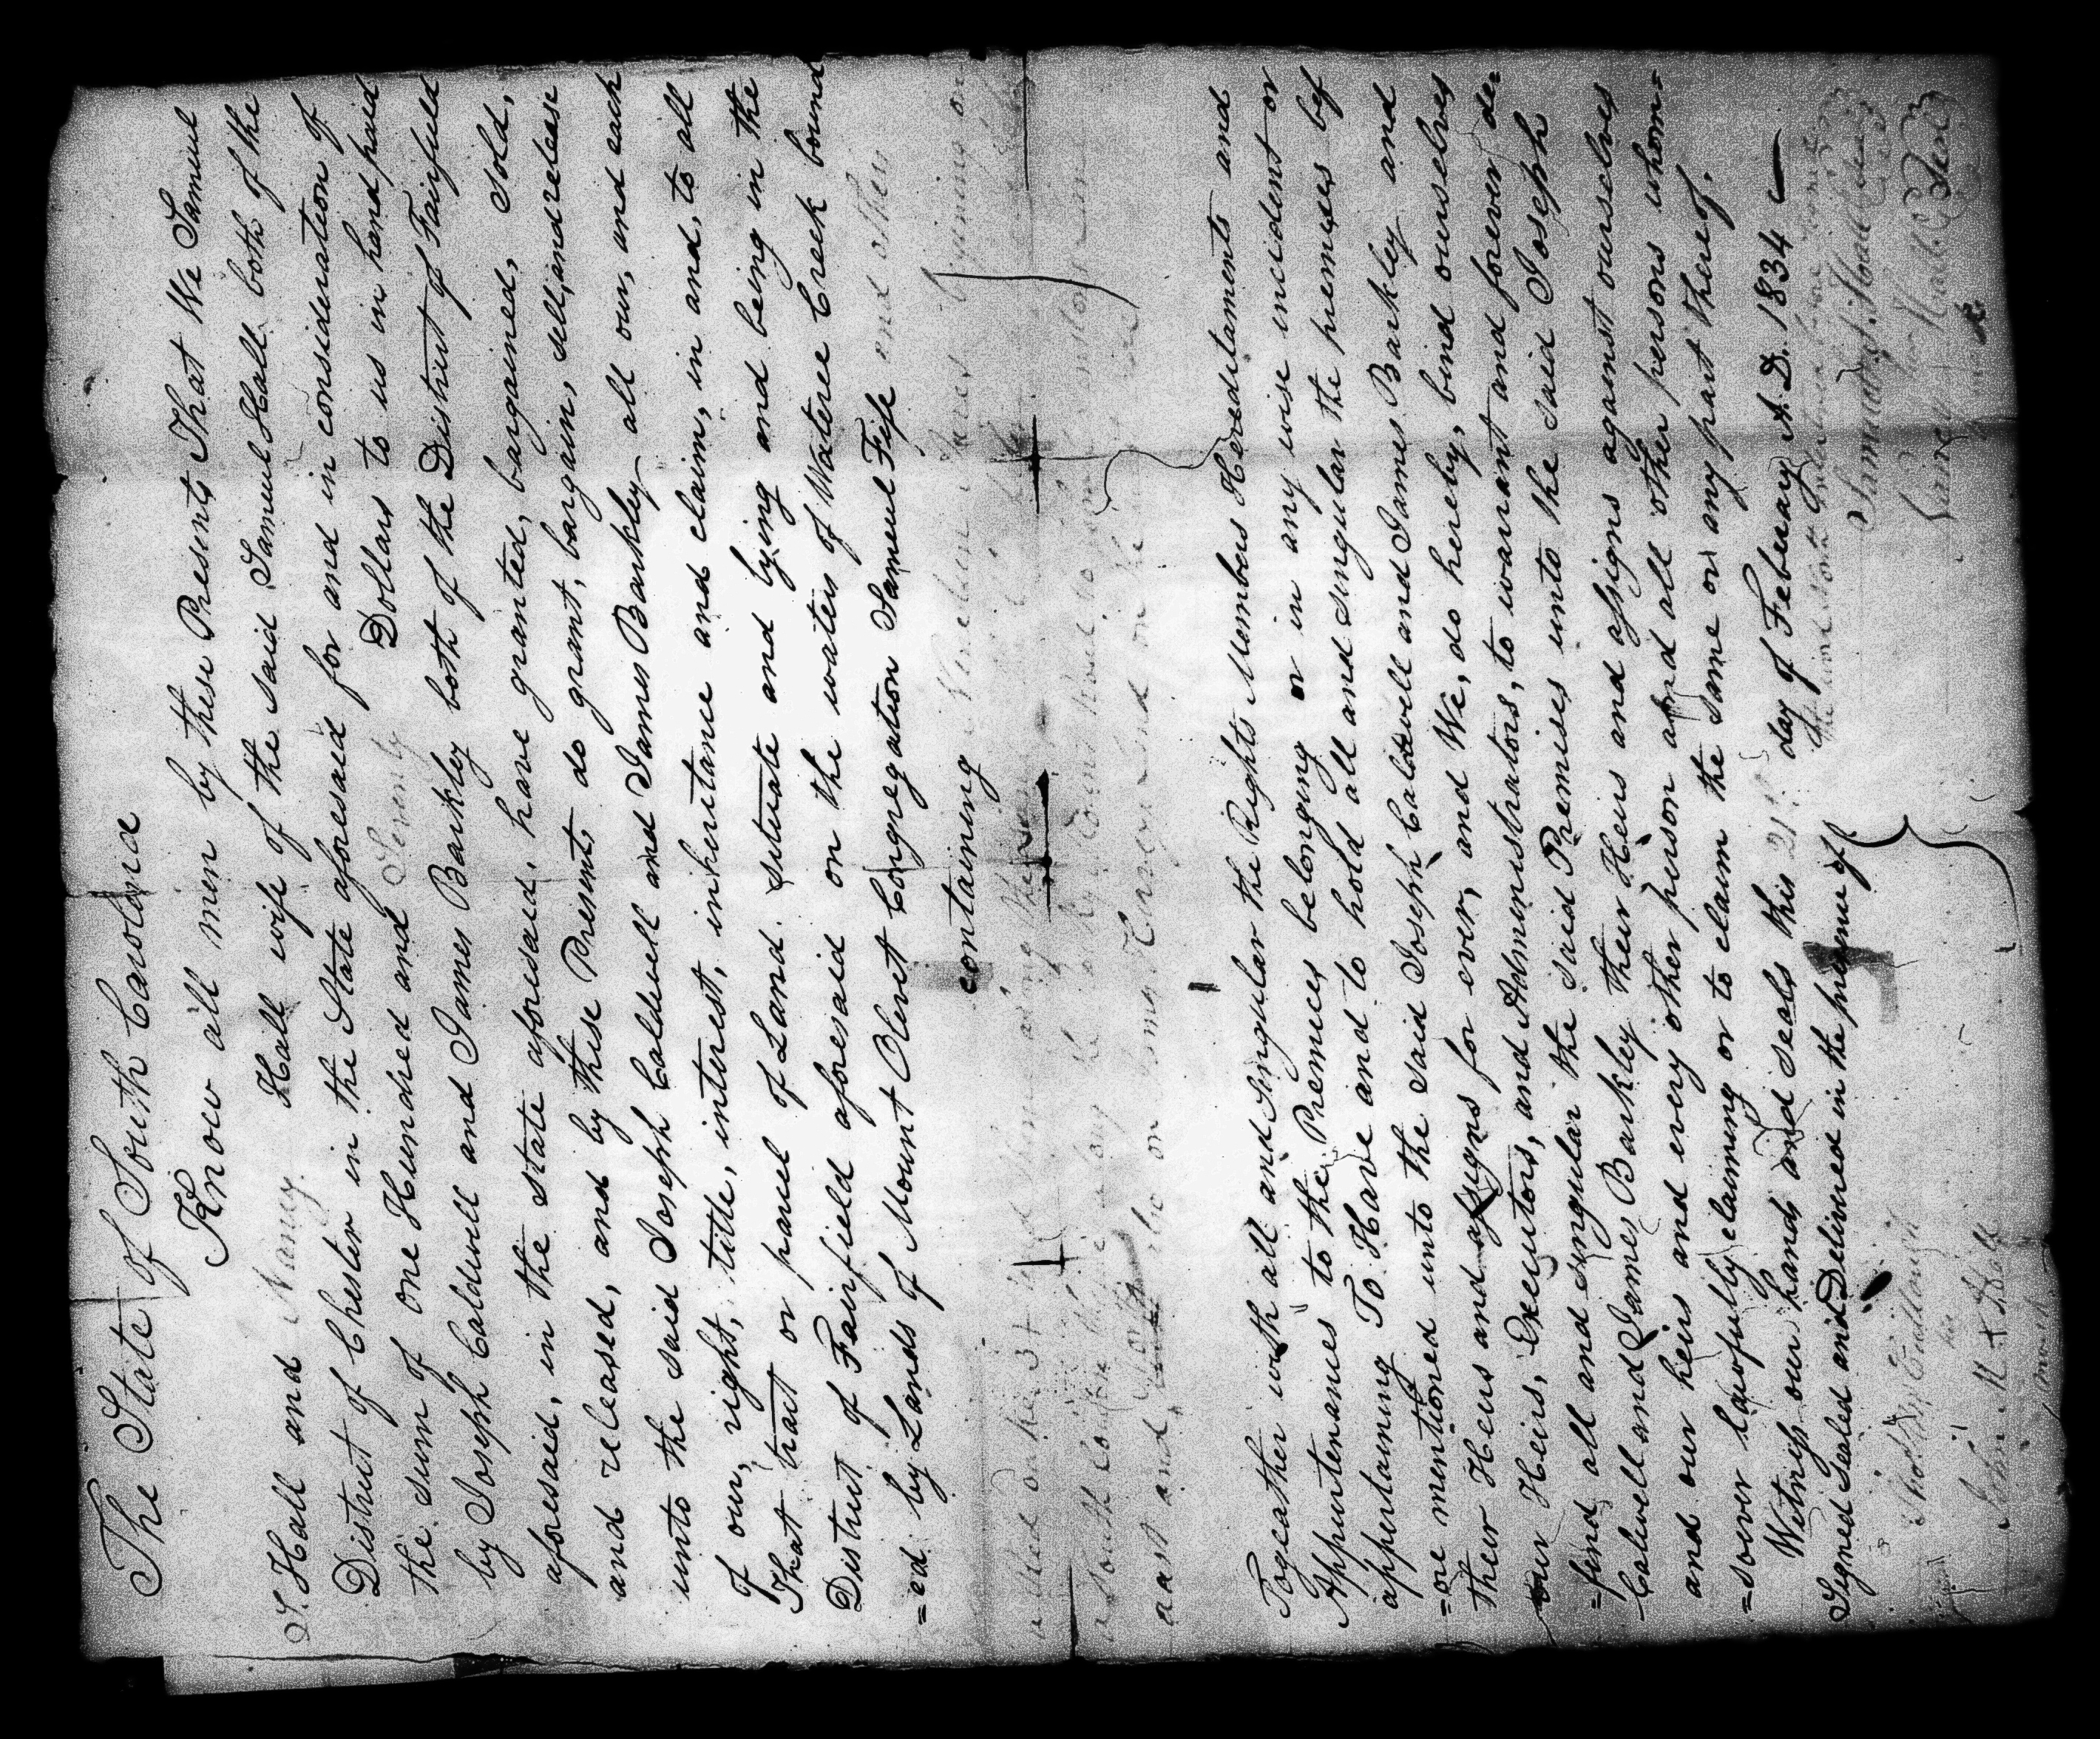 The State of South Carolina
Know all men by these Presents That We Samuel
S. Hall and Nancy Hall wife of the said Samuel Hall both of the
District of Chester in the State aforesaid for and in consideration of
the sum of one Hundred and Seventy Dollars to us in hand paid
by Joseph Caldwell and James Barkley both of the District of Fairfield
aforesaid, in the state aforesaid, have granted, bargained, sold,
and released, and by these Presents do grant, bargain, sell, and release
unto the said Joseph Caldwell and James Barkley all our, and each
of our, right, title, interest, inheritance and claim, in and, to all
That tract or parcel of Land. situate and lying and being in the
District of Fairfield aforesaid on the waters of Wateree Creek bound
=ed by Lands of Mount Olivet Congregation Samuel Fife and others
containing
a South
east and on the
Togeather with all and Singular the Rights Members Hereditaments and
Appurtenances to the Premices belonging or in any wise incident or
appertaining To Have and to hold all and singular the premises bef
=ore mentioned unto the said Joseph Calwell and James Barkley and
their Heirs and assigns for ever, and We, do hereby, bind ourselves
our Heirs, Executors, and Administrators, to warrant and forever de=
=fend all and singular the said Premises unto the said Joseph
Calwell and James Barkley their Heirs and assigns against ourselves
and our heirs and every other person and all other persons whom=
=soever lawfully claiming or to claim the same or any part thereof.
Witness our hands and seals this 21st day of Feberuary A. D. 1834
Signed Sealed and Delivered in the presence of
Samuel S. Hall Seal
Nancy Hall Seal
his
John M x Bell
mark